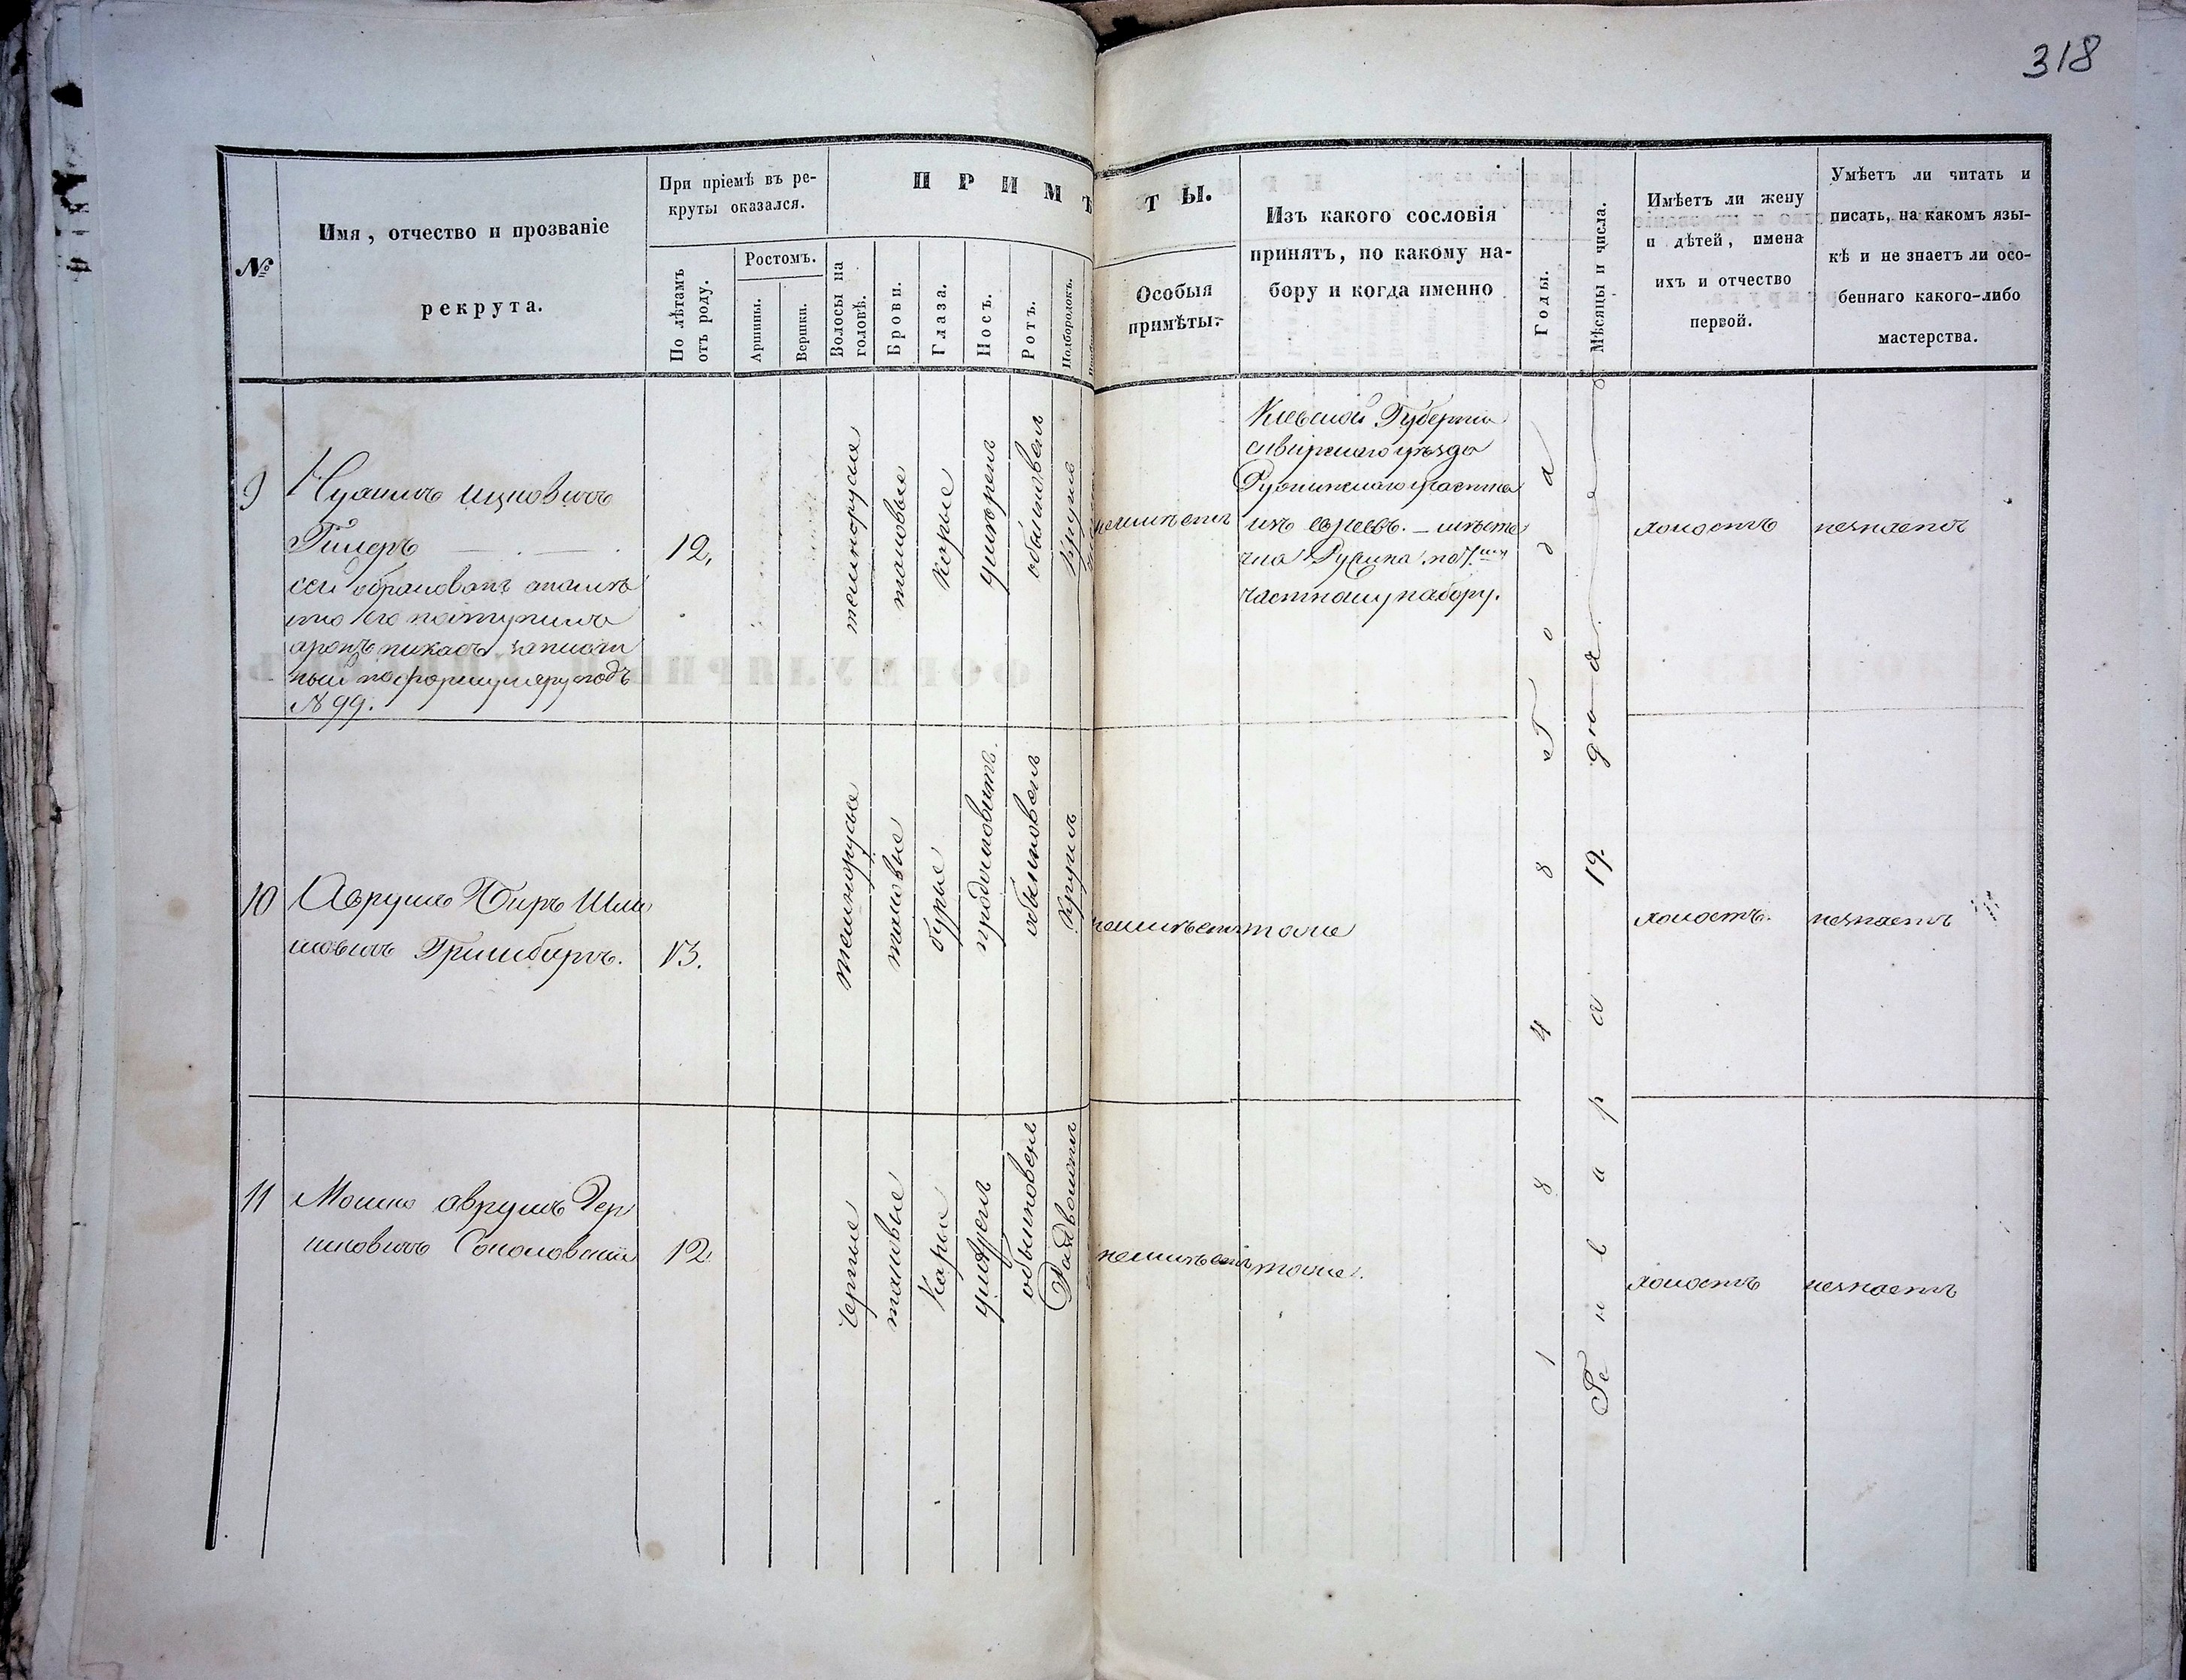 318
№
Имя, отчество и прозваніе
рекрута.
При пріемѣ въ ре-
круты оказался.
По лѣтамъ
отъ роду.
Ростомъ.
Аршины.
Вершки.
ПРИМѢ
Волосы на
головѣ.
Брови.
Глаза.
Носъ.
Ротъ.
Подбородокъ.
ТЫ.
Особыя
примѣты:
Изъ какого сословія
принятъ, по какому на-
бору и когда именно
Годы.
Мѣсяцы и числа.
Имѣетъ ли жену
и дѣтей, имена
ихъ и отчество
первой.
Умѣетъ ли читать и
писать, на какомъ язы-
кѣ и не знаетъ ли осо-
беннаго какого-либо
мастерства.
9
Ицковичъ
12.
темнорусые
таковые
Карые
умѣренъ
обыкновенъ
Круглъ
неимѣетъ
Кіевской Губерніи
сквирскаго уѣзда
Ружинскаго участка
изъ евреевъ. – мѣсте
чка Ружина по 7.
частному набору.
холостъ
незнаетъ
поступилъ
записан
ный по формуляру подъ
№ 99.
10
Аврумъ Беръ Шлі
мовичъ Гринбергъ.
13.
темнорусые
таковые
бурые
продолговатъ.
обыкновенъ
Круглъ
неимѣетъ
тоже
холостъ.
незнаетъ
11
Мошко Аврумъ Гер
шковичъ Соколовскій
12.
Черные
таковые
Карые
умѣренъ
обыкновенъ
Раздвоенъ
неимѣетъ
тоже.
холостъ
незнаетъ
1848 Года
Генваря 19. дня